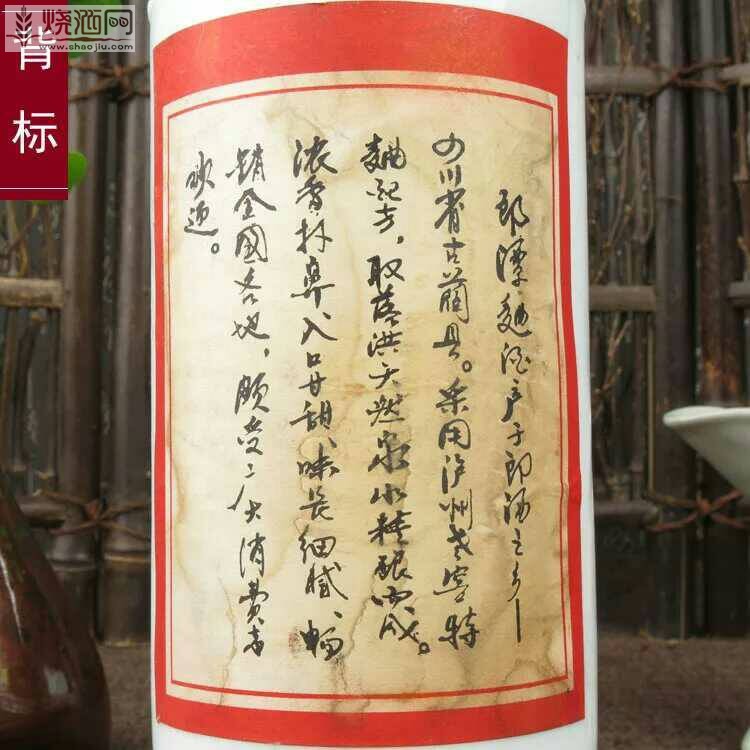 烧酒网
www.shaojiu.com
背标
郎潭麯酒产于郎酒之乡—
四川省古蔺县。采用泸州老窖特
麯配方，取落洪天然泉水精酿而成。
浓香扑鼻、入口甘甜、味长细腻、畅
销全國各地，颇受广大消费者
欢迎。